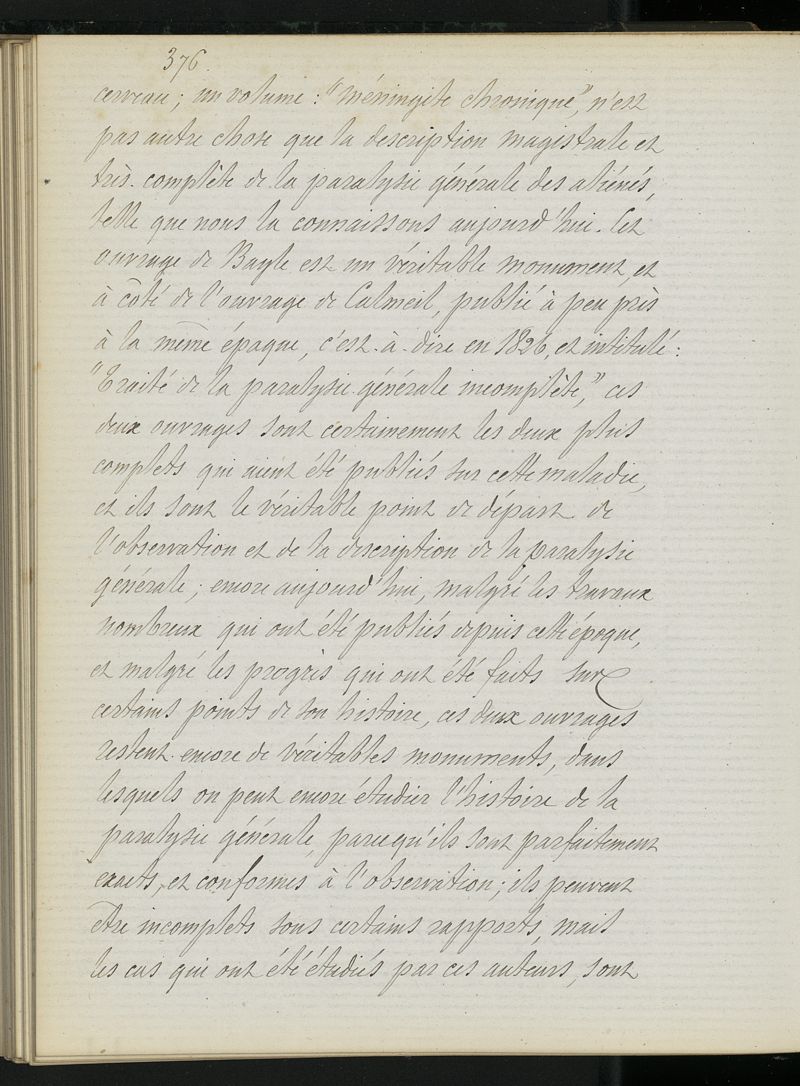 376.
cerveau; un volume: "méningite chronique", n'est
pas autre chose que la description magistrale et
très-complète de la paralysie générale des aliénés,
telle que nous la connaissons aujourd'hui. Cet
ouvrage de Bayle est un véritable monument, et
à côté de l'ouvrage de Calmeil, publié à peu près
à la même époque, c'est-à-dire en 1826, et intitulé:
"Traité de la paralysie générale incomplète", ces
deux ouvrages sont certainement les deux plus
complets qui aient été publiés sur cette maladie,
et ils sont le véritable point de départ de
l'observation et de la description de la paralysie
générale; encore aujourd'hui, malgré les travaux
nombreux qui ont été publiés depuis cette époque,
et malgré les progrès qui ont été faits sur
certains points de son histoire, ces deux ouvrages
restent encore de véritables monuments, dans
lesquels on peut encore étudier l'histoire de la
paralysie générale, parcequ'ils sont parfaitement
exacts, et conformes à l'observation; ils peuvent
être incomplets sous certains rapports, mais
les cas qui ont été étudiés par ces auteurs, sont